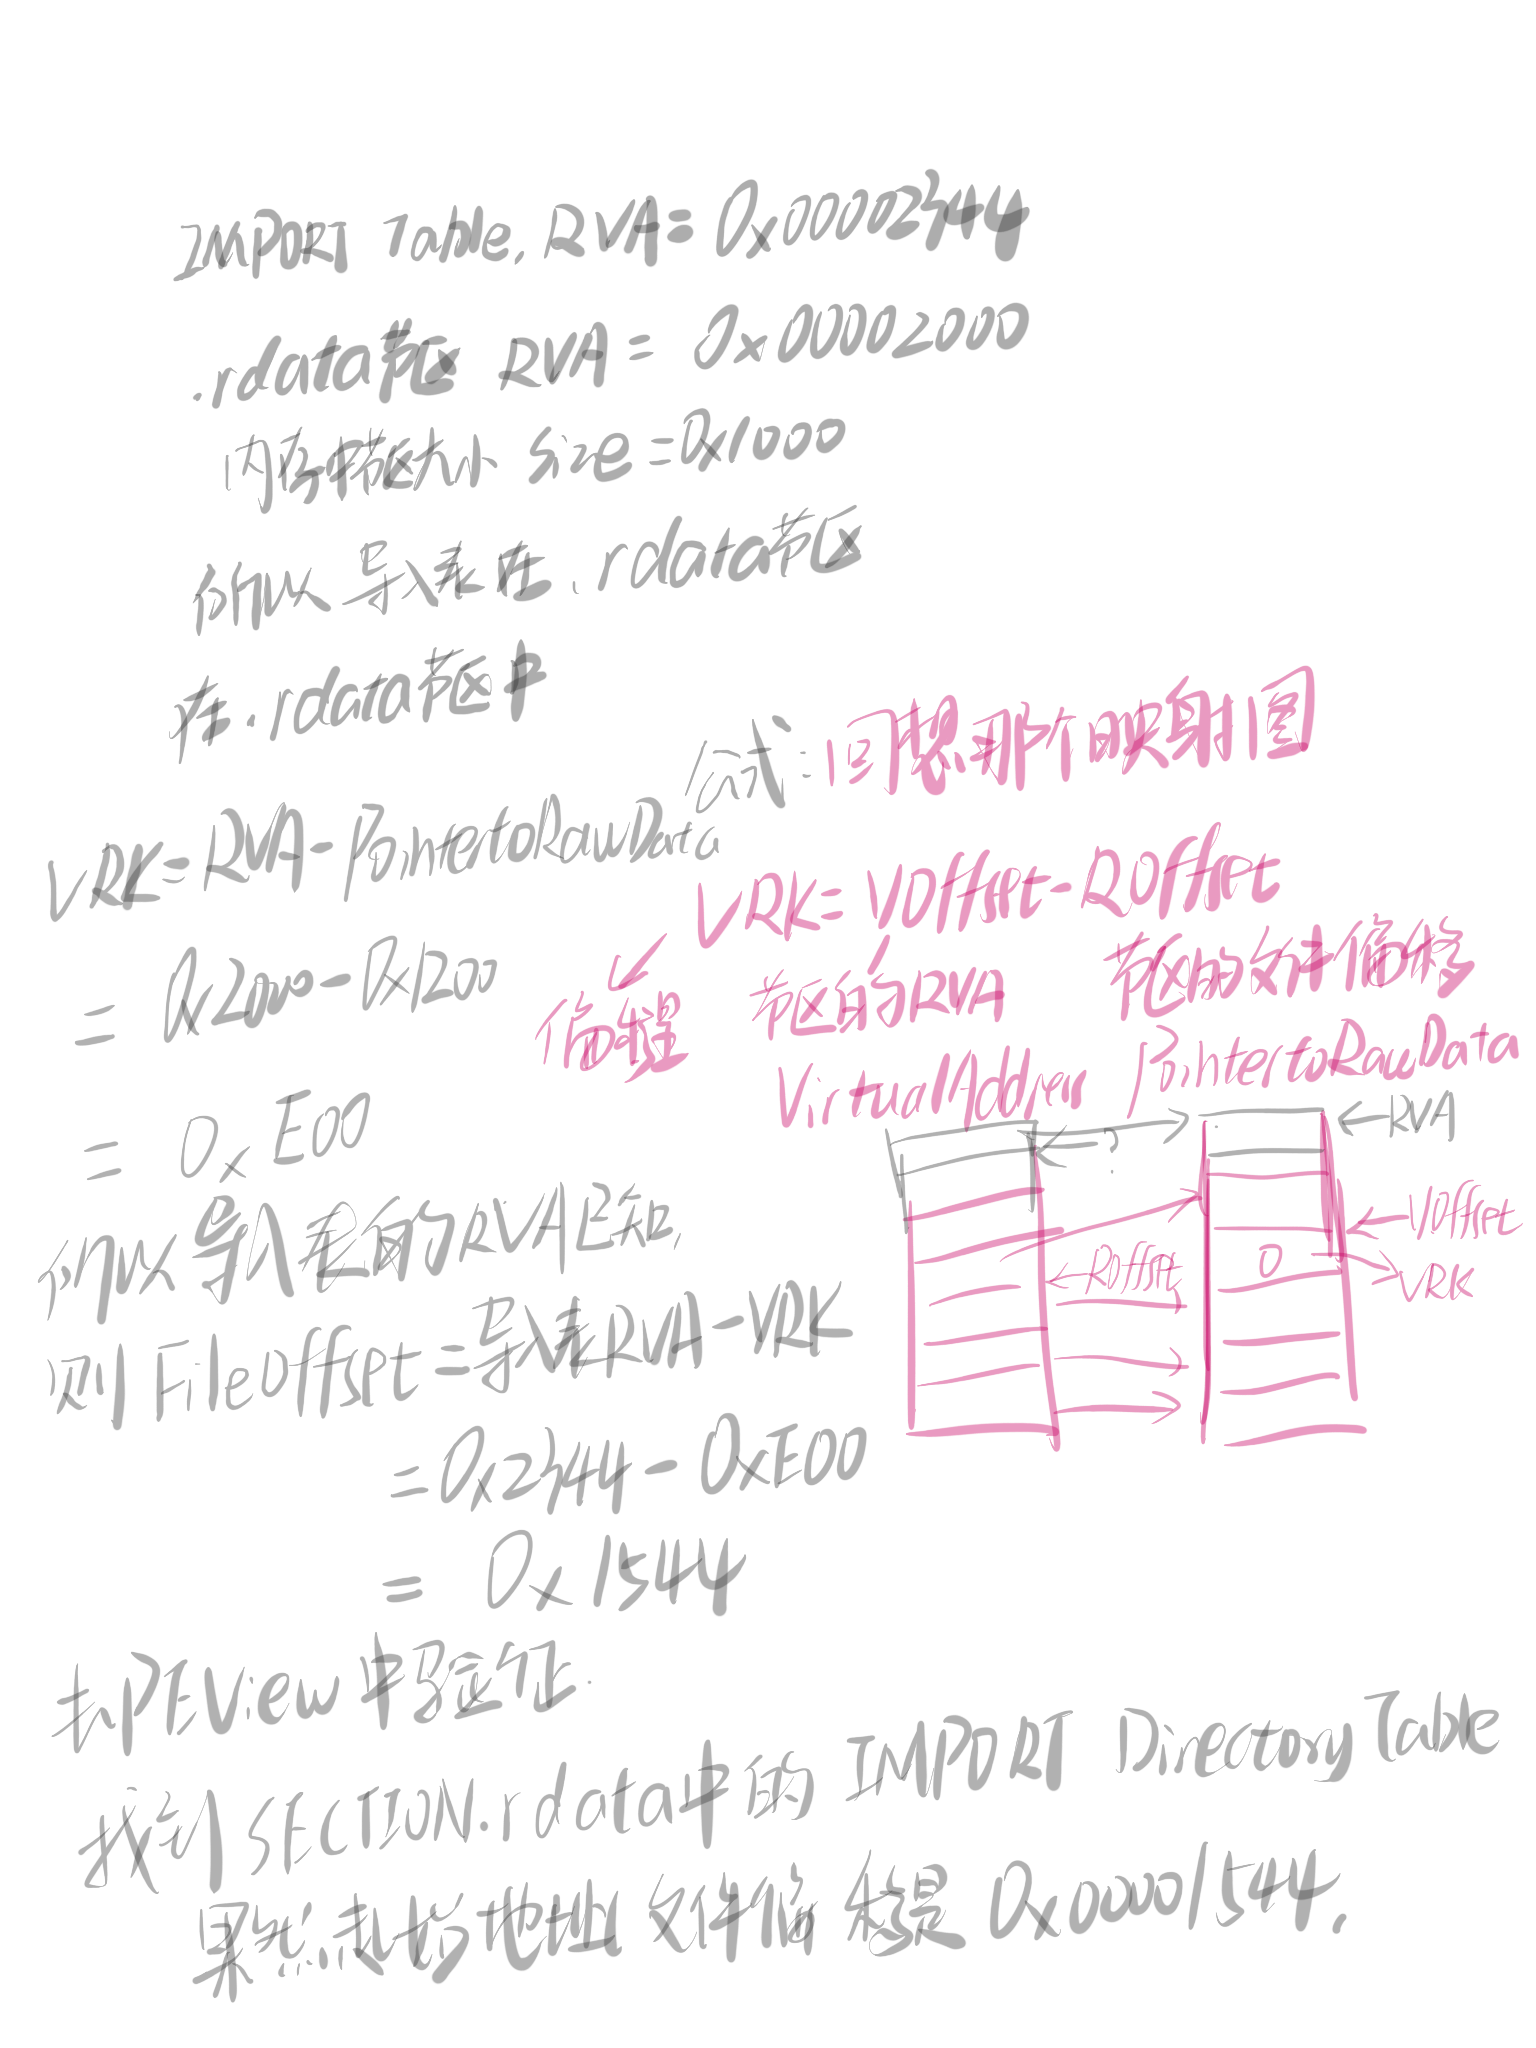 IMPORT Table. RVA=0x00002344
.rdata节区 RVA= 0x00002000
内存中节区大小 Size=0x1000
所以导入表在.rdata节区
在.rdata节区中
公式:回想那个映射图
VRK=RVA-PointertoRawData
VRK=VOffset-ROffset
=0x2000-0x1200
偏移量 节区的RVA 节区的文件偏移
VirtualAddress PointertoRawData
=0xE00
?
←RVA
所以导入表的RVA已知,
←VOffset
←ROffset
0
VRK
则FileOffset=导入表RVA-VRK
=0x2344-0xE00
=0x1544
去PEView中验证.
找到SECTION.rdata中的IMPORT Directory Table
果然起始地址文件偏移是0x00001544.